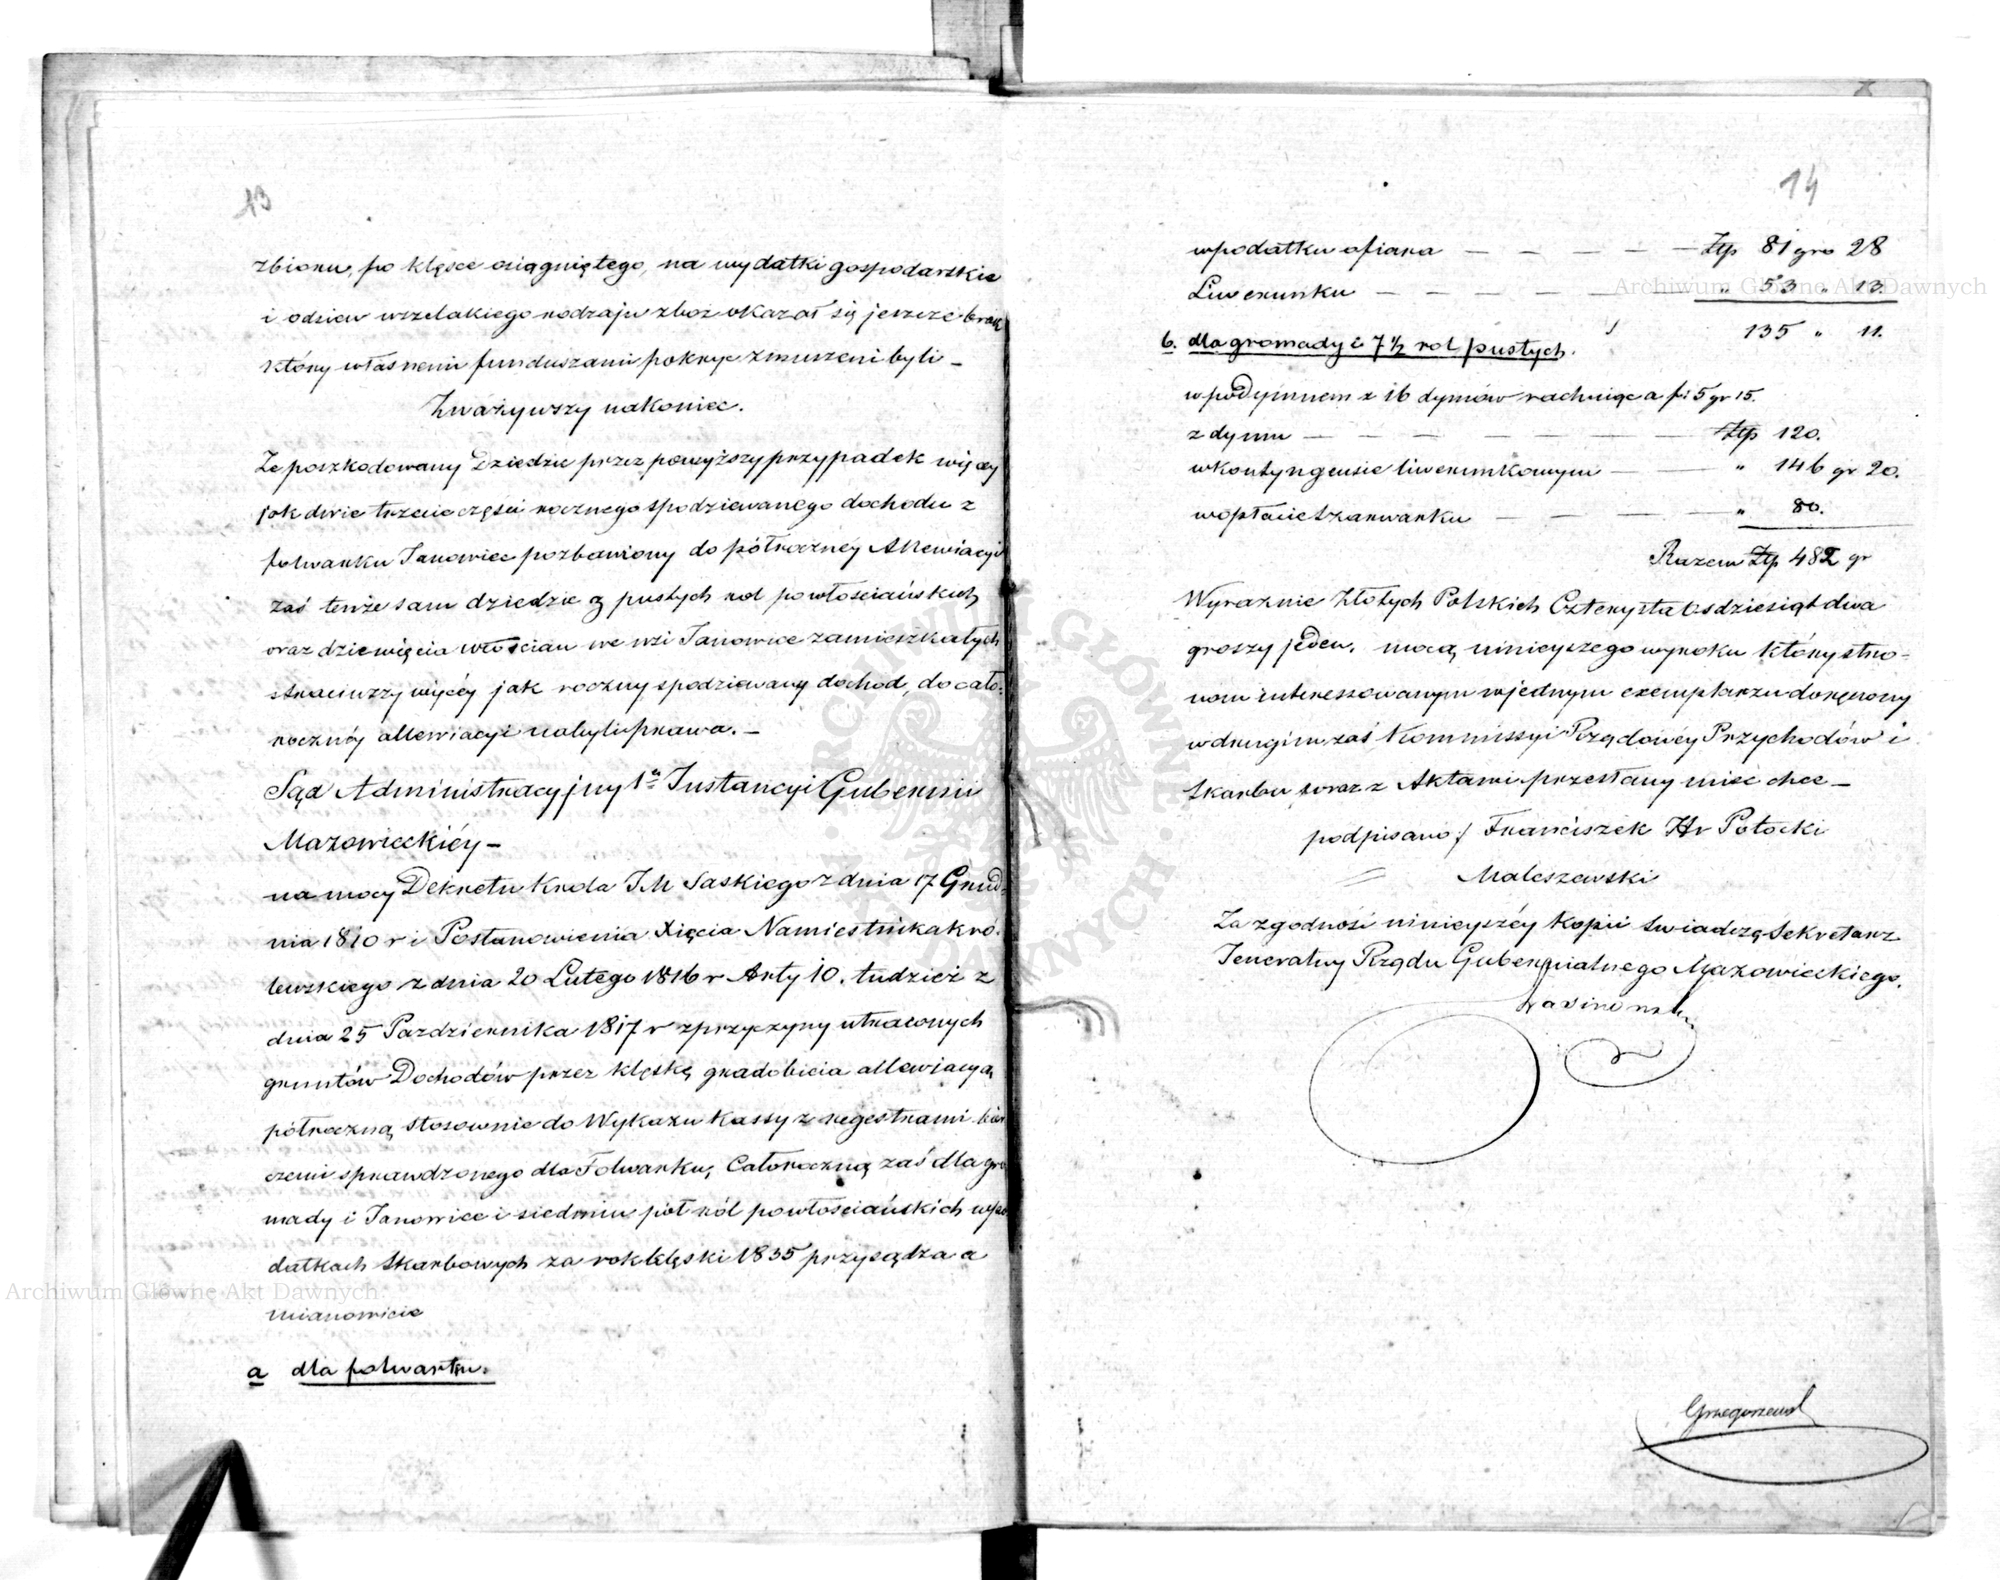 13
zbioru, po klęsce osiągniętego, na wydatki gospodarskie
i odsiew wszelakiego rodzaju zboż okazał się jeszcze brak
który własnemi funduszami pokryć zmuszeni byli –
Zważywszy nakoniec.
Że poszkodowany Dziedzic przez powyższy przypadek więcey
jak dwie trzecie części rocznego spodziewanego dochodu z
folwarku Janowiec pozbawiony do półroczney Allewiacyi
zaś tenże sam dziedzic z pustych rol powłościańskich
oraz dziewięciu włościan we wsi Janowice zamieszkałych
straciwszy więcéy jak roczny spodziewany dochod, do cało-
rocznéy allewiacyi nabyli prawa. –
Sąd Administracyjny 1ey Instancyi Gubernii
Mazowieckiéy –
na mocy Dekretu Króla JM Saskiego z dnia 17 Grud-
nia 1810 r i Postanowienia Xięcia Namiestnika kró-
lewskiego z dnia 20 Lutego 1816 r Arty 10. tudzież z
dnia 25 Pazdziernika 1817 r z przyczyny utraconych
gruntów Dochodów przez klęskę gradobicia allewiacyą
półroczną stosownie do Wykazu Kassy z regestrami bier
czemi sprawdzonego dla Folwarku, Całoroczną zaś dla gro
mady i Janowice i siedmiu pół ról powłościańskich w po
datkach Skarbowych za rok klęski 1835 przysądza a
mianowicie
a dla folwarku.
14
w podatku ofiara — — — — — Złp 81 gro 28
Liwerunku — — — — — " 53 " 13.
135 " 11.
b. dla gromady i 7 1/2 rol pustych.
w podymnem z 16 dymów rachując a fl 5 gr 15.
z dymu — — — — — — Złp 120.
w kontyngensie liwerunkowym — — " 146 gr 20.
w opłacie szarwarku — — — — " 80.
Razem Złp 482 gr
Wyraźnie Złotych Polskich Czterysta Ośdziesiąt dwa
groszy jeden. mocą ninieyszego wyroku który stro-
nom interessowanym w jednym exemplarzu doręczony
w drugim zaś Kommissyi Rządowéy Przychodów i
Skarbu wraz z Aktami przesłany mieć chce –
podpisano / Franciszek Hr Potocki
Maleszewski
Za zgodność ninieyszéy Kopii świadczę Sekretarz
Jeneralny Rządu Gubernialnego Mazowieckiego.
Archiwum Główne Akt Dawnych
Archiwum Główne Akt Dawnych
ARCHIWUM GŁÓWNE AKT DAWNYCH